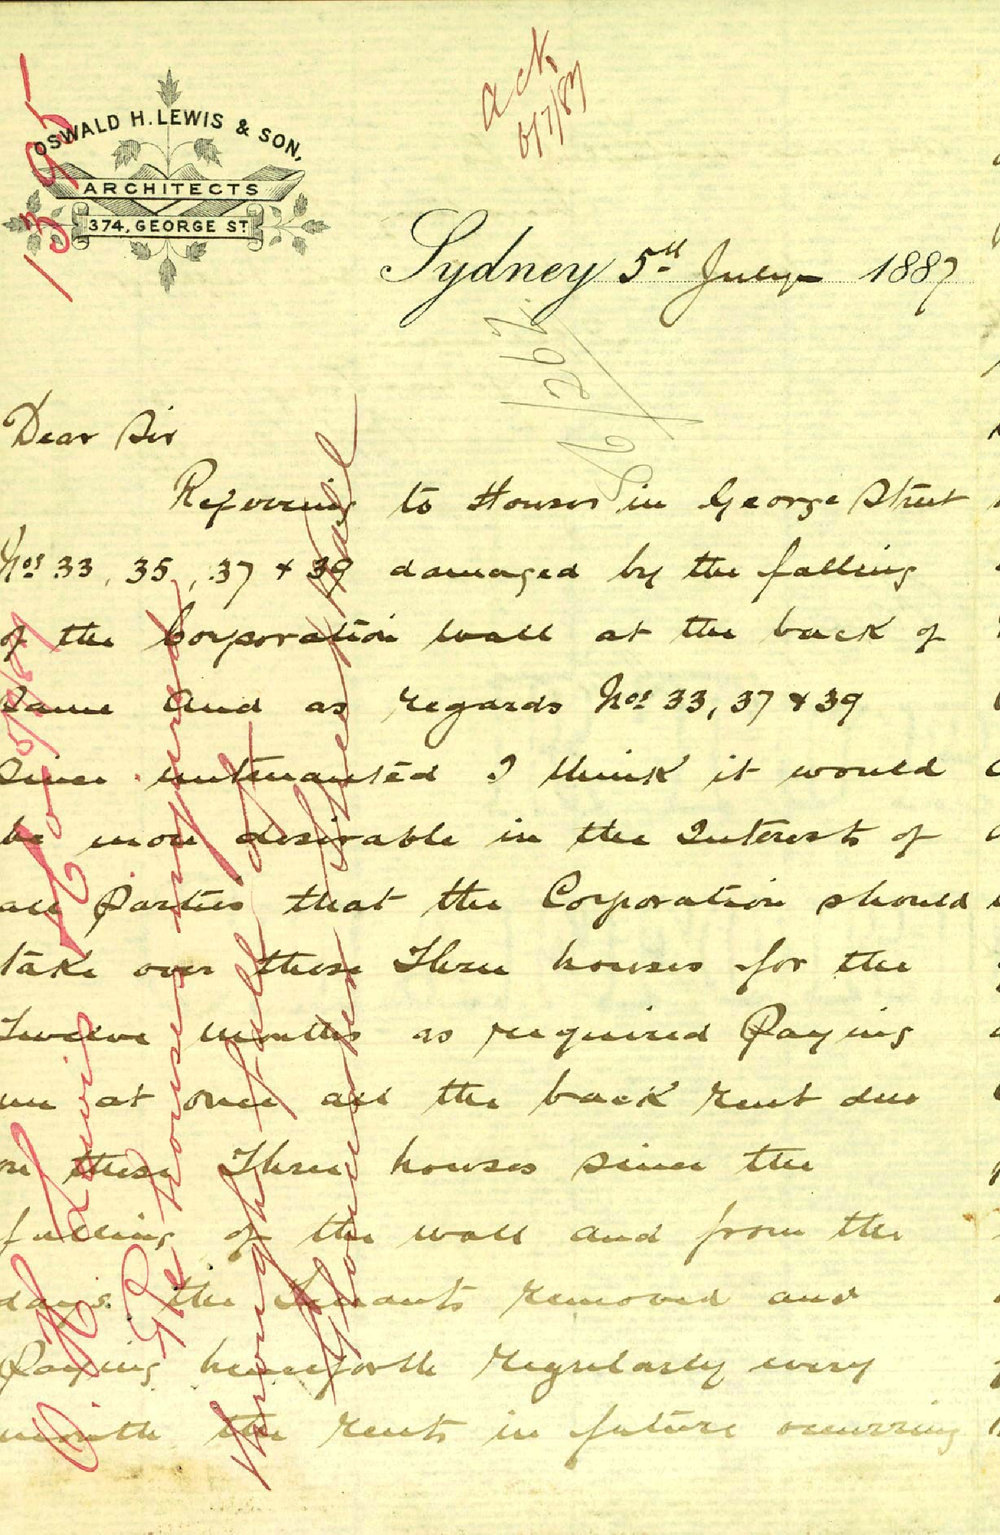 OSWALD H. LEWIS & SON,
ARCHITECTS
374, GEORGE ST
1395
Ack
6/7/87
Sydney 5th July 1887
Dear Sir
Referring to Houses in George Street
Nos 33, 35, 37 & 39 damaged by the falling
of the Corporation wall at the back of
same and as regards Nos 33, 37 & 39
since untenanted I think it would
be more desirable in the Interests of
all Parties that the Corporation should
take over these Three houses for the
Twelve months as required Paying
me at once all the back rent due
on these Three houses since the
falling of the wall and from the
days the Tenants removed and
Paying henceforth regularly every
month the rents in future occurring
O. H. Lewis & Co 5/7/87
Re houses injured
through fall of
Gloucester Street Wall